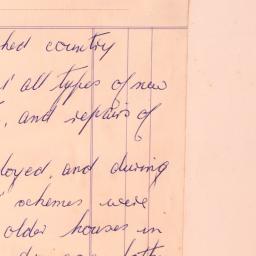 hed country
all types of new
, and repairs of
loyed, and during
schemes were
older houses in